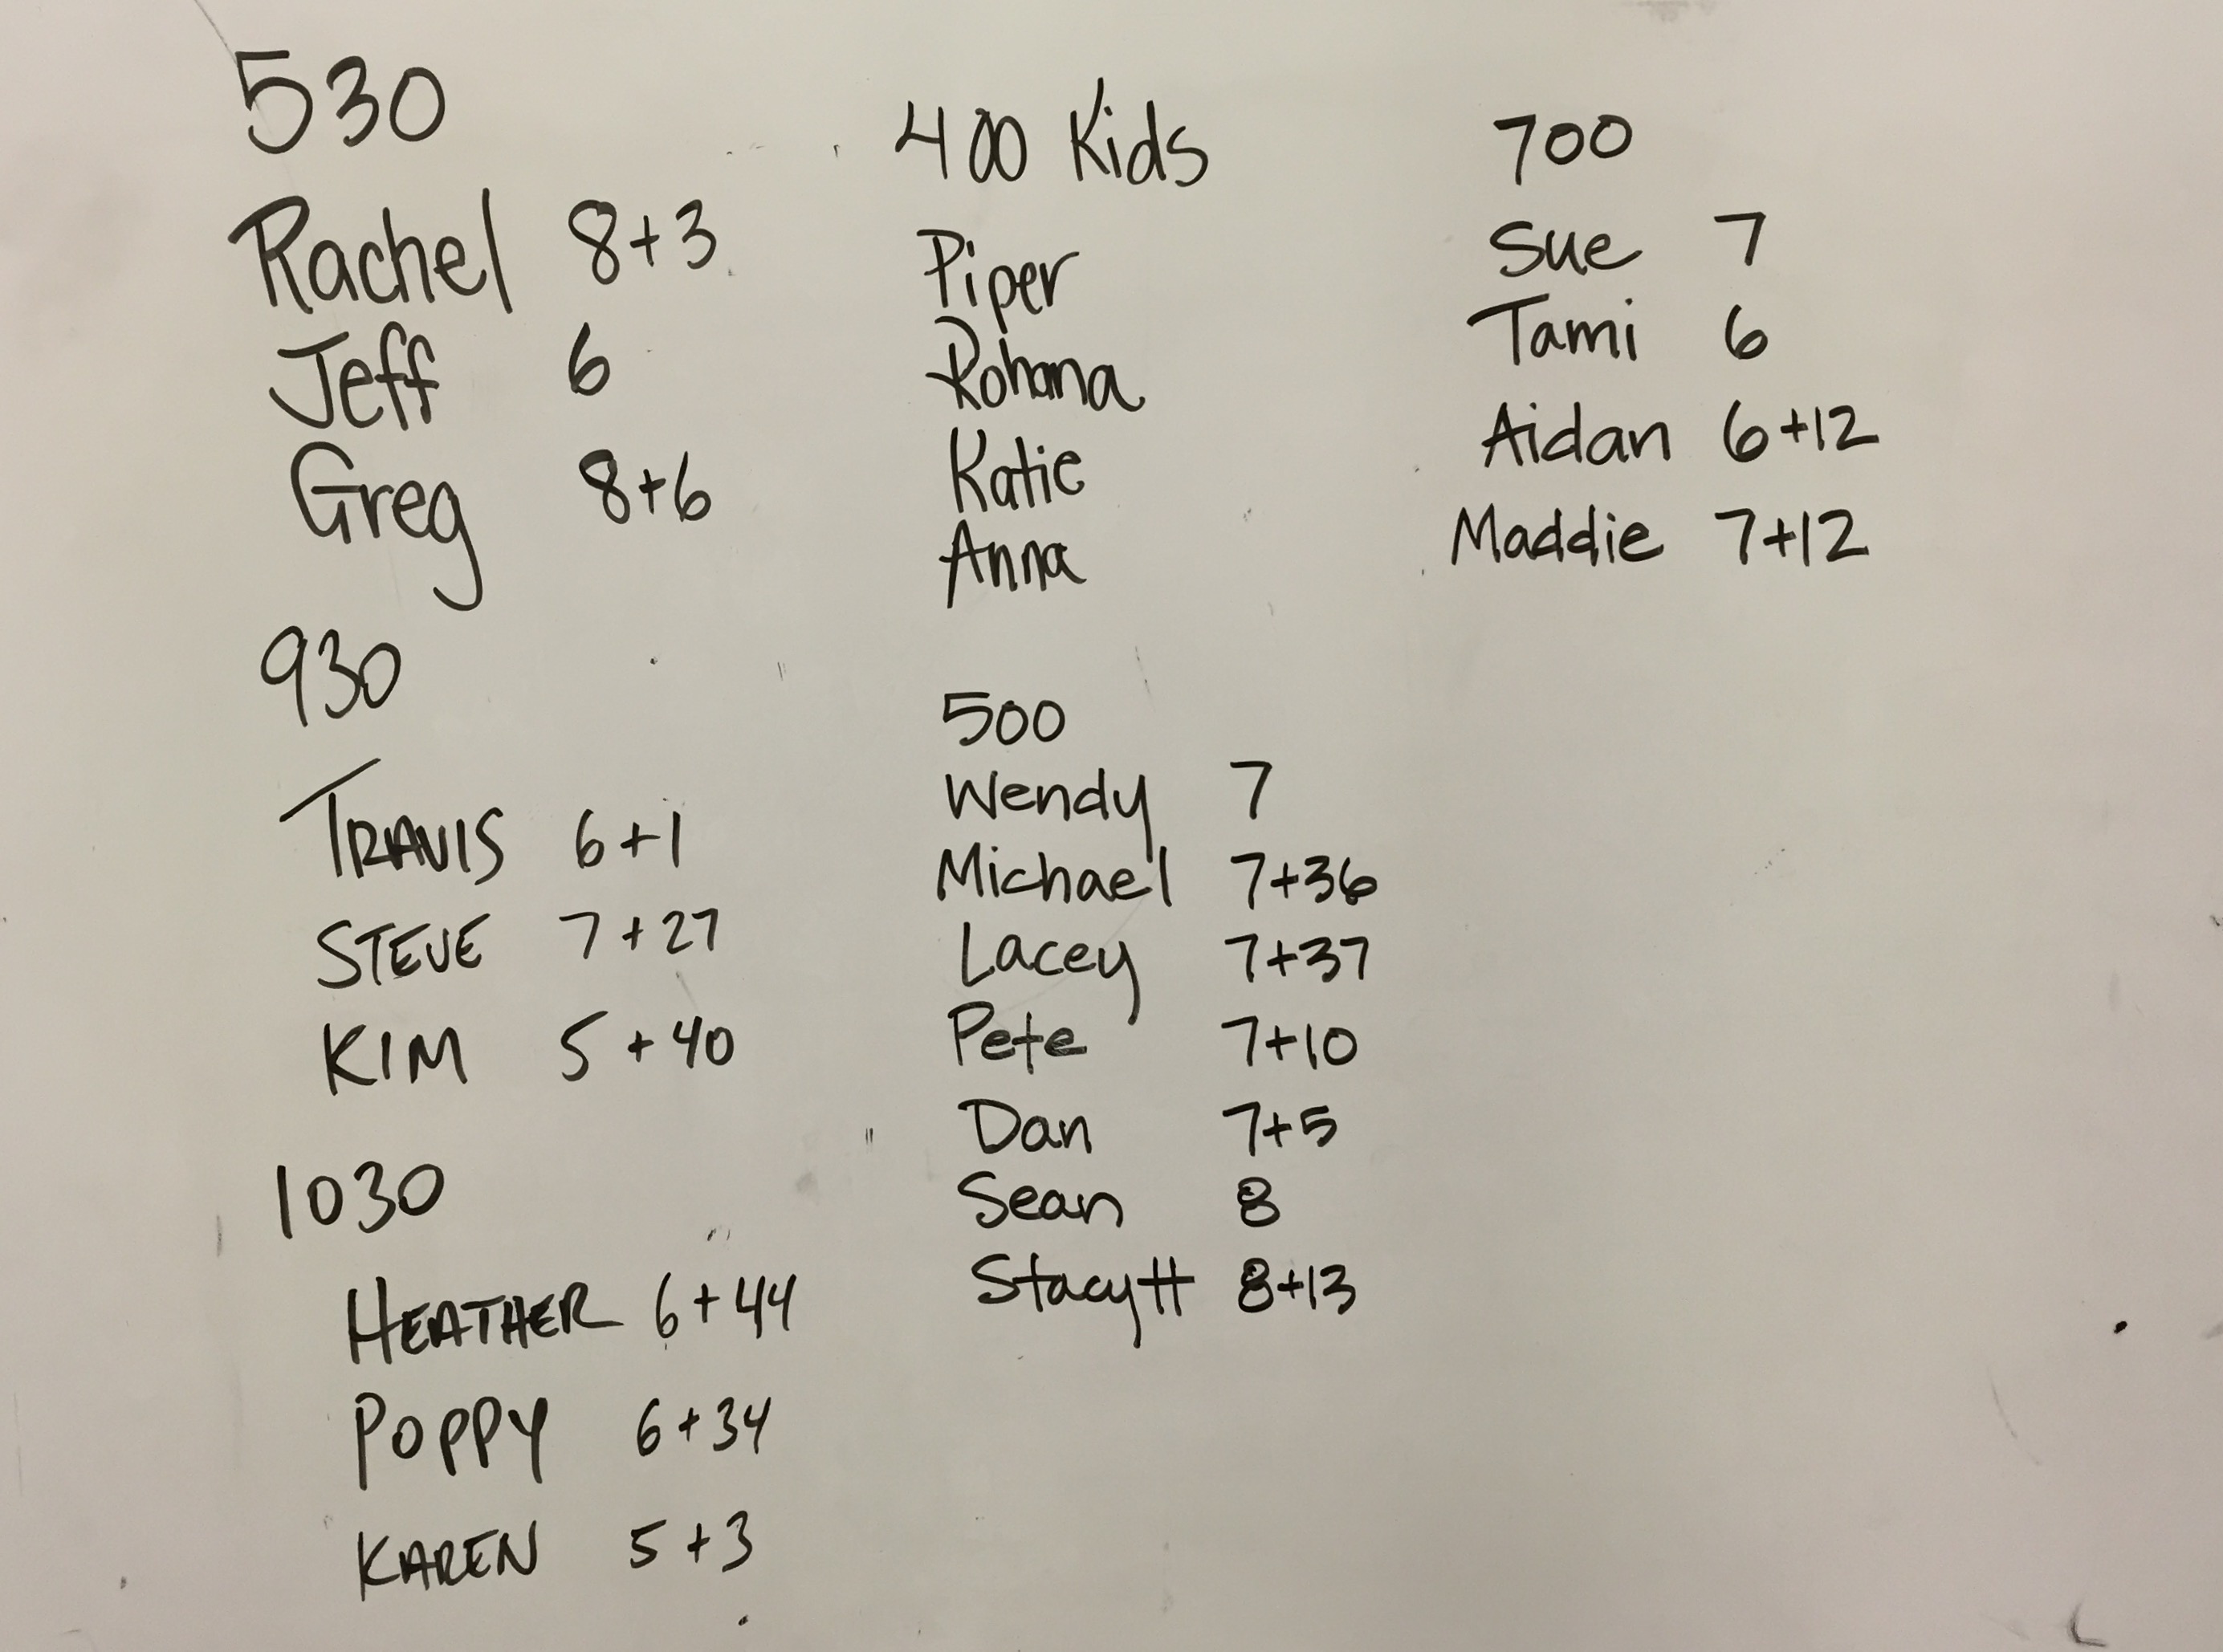 530
Rachel 8+3
Jeff 6
Greg 8+6
930
TRAVIS 6+1
STEVE 7+27
KIM 5+40
1030
HEATHER 6+44
POPPY 6+34
KAREN 5+3
400 Kids
Piper
Rohana
Katie
Anna
500
Wendy 7
Michael 7+36
Lacey 7+37
Pete 7+10
Dan 7+5
Sean 8
Stacy H 8+13
700
Sue 7
Tami 6
Aidan 6+12
Maddie 7+12